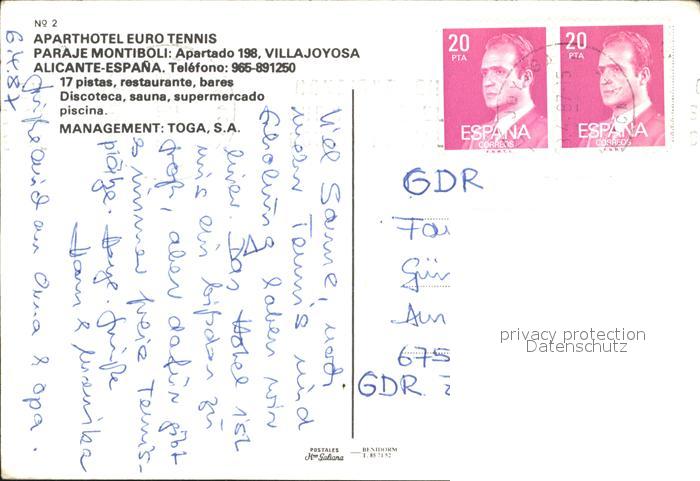 Nº 2
APARTHOTEL EURO TENNIS
PARAJE MONTIBOLI: Apartado 198, VILLAJOYOSA
ALICANTE-ESPAÑA. Teléfono: 965-891250
17 pistas, restaurante, bares
Discoteca, sauna, supermercado
piscina.
MANAGEMENT: TOGA, S.A.
6.4.87
Viel Sonne, noch
mehr Tennis und
Erholung haben wir
hier. Das Hotel ist
uns ein bißchen zu
groß, aber dafür gibt
es immer freie Tennis-
plätze. Grüße
Hans & Monika
Grüße auch an Oma & Opa.
20
PTA
ESPAÑA
CORREOS
20
PTA
ESPAÑA
CORREOS
GDR
Fa
Gün
Am
675
GDR
privacy protection
Datenschutz
POSTALES
Hnos Galiana
BENIDORM
T. 85 71 52